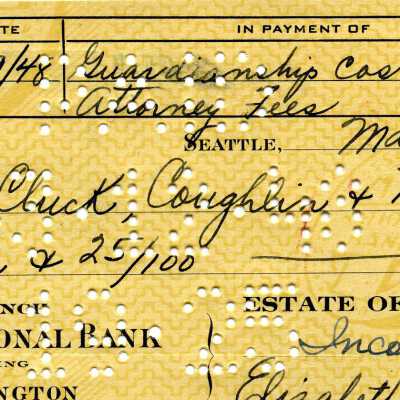 TE IN PAYMENT OF
9/48 Guardianship Cos
Attorney Fees
SEATTLE, Ma
Cluck, Coughlin &
& 25/100
NCE ESTATE OF
IONAL BANK Inco
NG
NGTON Elizabeth